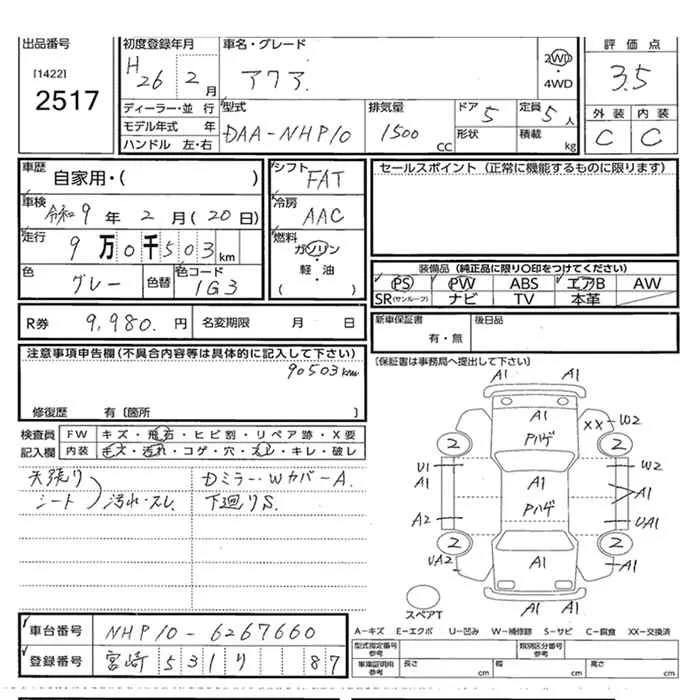 出品番号 初度登録年月 車名・グレード 2WD・4WD 評価点
[1422] H26年 2月 アクア 3.5
2517 外装 内装
ディーラー・並行 型式 排気量 ドア 5 定員 5人 C C
モデル年式 年 DAA-NHP10 1500CC 形状 積載 kg
ハンドル 左・右
車歴 自家用・( ) シフト FAT セールスポイント (正常に機能するものに限ります)
車検 令和9年2月(20日) 冷房 AAC
走行 9万0千503km 燃料 ガソリン・軽油 ( )
色 グレー 色替 色コード 1G3
装備品 (純正品に限り○印をつけてください)
PS PW ABS エアB AW
SR(サンルーフ) ナビ TV 本革
R券 9,980.円 名変期限 月 日 新車保証書 有・無 後日品
注意事項申告欄(不具合内容等は具体的に記入して下さい) (保証書は事務局へ提出して下さい)
90503km
修復歴 有〔箇所 〕
検査員記入欄 FW キズ・飛石・ヒビ割・リペア跡・X要
内装 キズ・汚れ・コゲ・穴・スレ・キレ・破レ
天張り Dミラー・WカバーA.
シート 汚れ・スレ 下廻りS.
A1 A1
A1 XX-W2
2 Pハゲ 2
U1 W2
A1 A1 A1
Pハゲ
A2 UA1
2 2
UA2 A1 A1
スペアT
A1 A1
A-キズ E-エクボ U-凹み W-補修跡 S-サビ C-腐食 XX-交換済
車台番号 NHP10-6267660
型式指定番号 参考 類別区分番号 参考
登録番号 宮崎 531 り 87
車庫証明用 参考 長さ cm 幅 cm 高さ cm